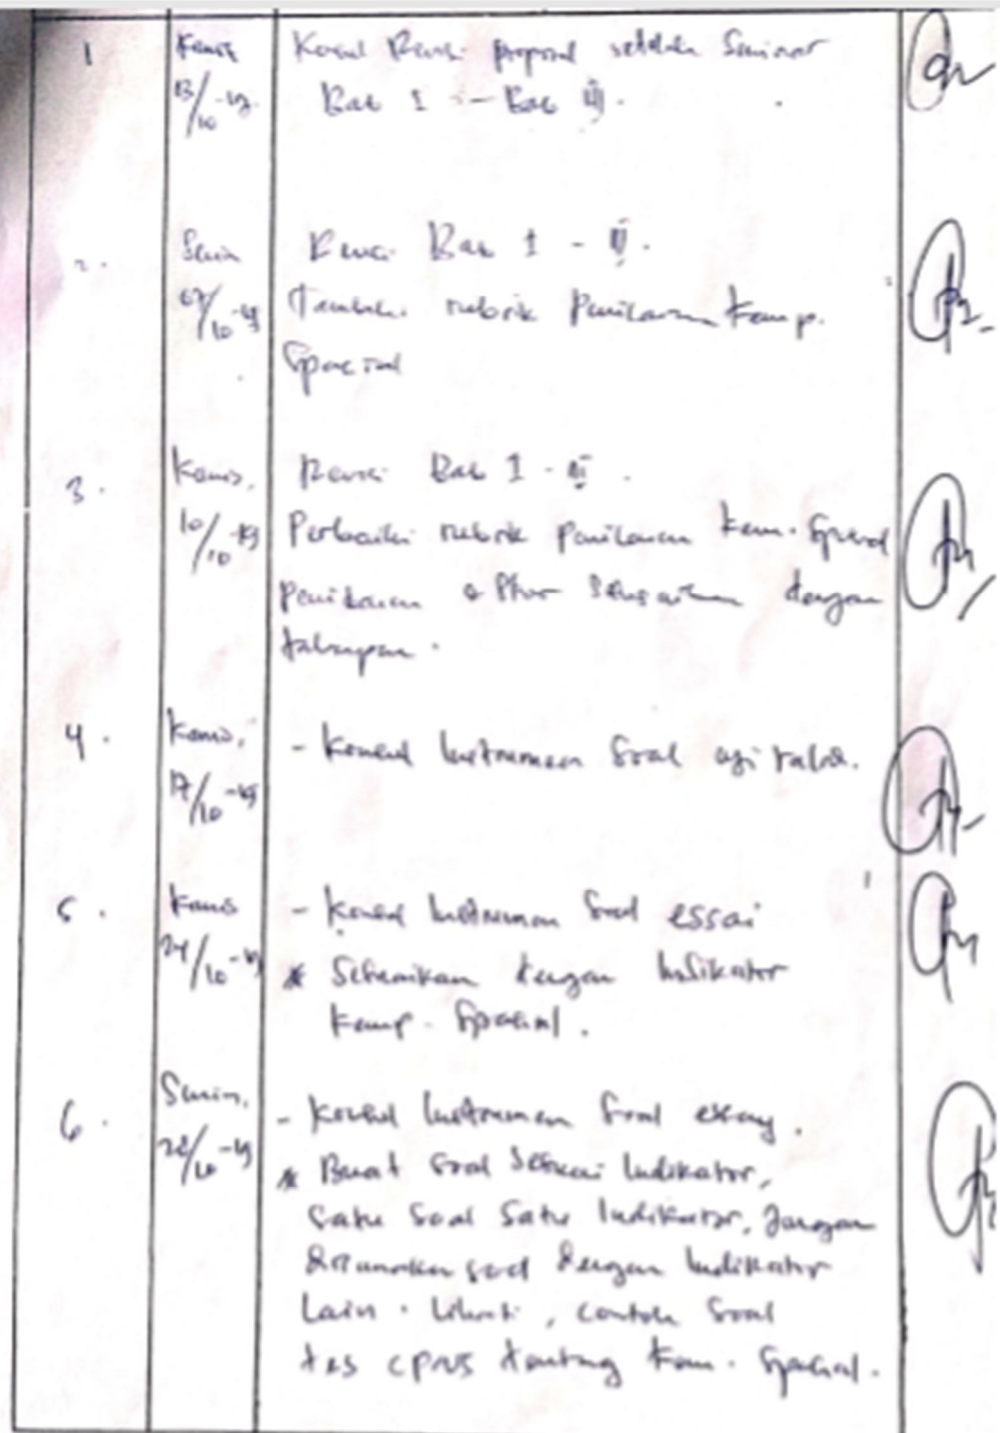 1 Kamis Konsul Revisi proposal setelah Seminar
13/10-19. Bab I - Bab III.
2. Senin Revisi Bab I - III.
07/10-19 Tambah rubrik Penilaian Kemp.
Spacial
3. Kamis, Revisi Bab I - III.
10/10-19 Perbaiki rubrik penilaian Kem. Spasial
penilaian Sesuaikan dengan
tahapan.
4. Kamis, - Konsul Instrumen Soal uji
17/10-19
5. Kamis - Konsul Instrumen Soal essai
24/10-19 * Sesuaikan dengan Indikator
Kemp. Spacial.
6. Senin, - Konsul Instrumen Soal essay.
28/10-19 * Buat Soal Sesuai Indikator,
Satu Soal Satu Indikator, Jangan
soal dengan Indikator
Lain. , contoh Soal
tes CPNS tentang Kem. Spacial.